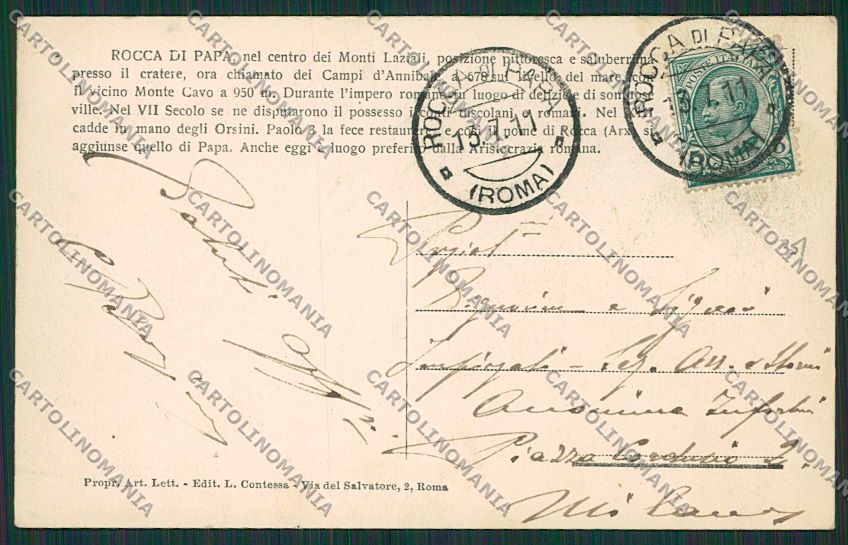 ROCCA DI PAPA, nel centro dei Monti Laziali, posizione pittoresca e saluberrima
presso il cratere, ora chiamato dei Campi d'Annibale a 678 sul livello del mare, con
il vicino Monte Cavo a 950 m. Durante l'impero romano fu luogo di delizie di sontuose
ville. Nel VII Secolo se ne disputarono il possesso i tuscolani
cadde in mano degli Orsini. Paolo 3 la fece restaurare e con il nome di Rocca (Arx) si
aggiunse quello di Papa. Anche oggi è luogo preferito dalla Aristocrazia romana.
ROCCA DI PAPA
15.7.11
(ROMA)
ROCCA DI PAPA
15.7.11
(ROMA)
POSTE ITALIANE
Saluti
Signorine e Signori
Impiegati
Anonima Infortuni
Piazza Cordusio 2.
Milano
Propr. Art. Lett. - Edit. L. Contessa - Via del Salvatore, 2, Roma
CARTOLINOMANIA